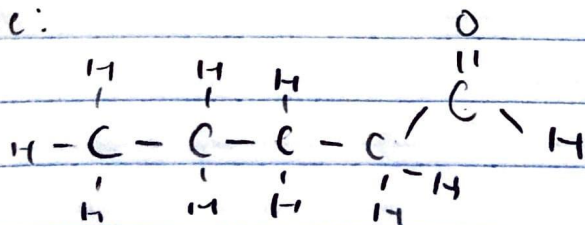 e:
O
||
H H H C
H - C - C - C - C H
H H H H H